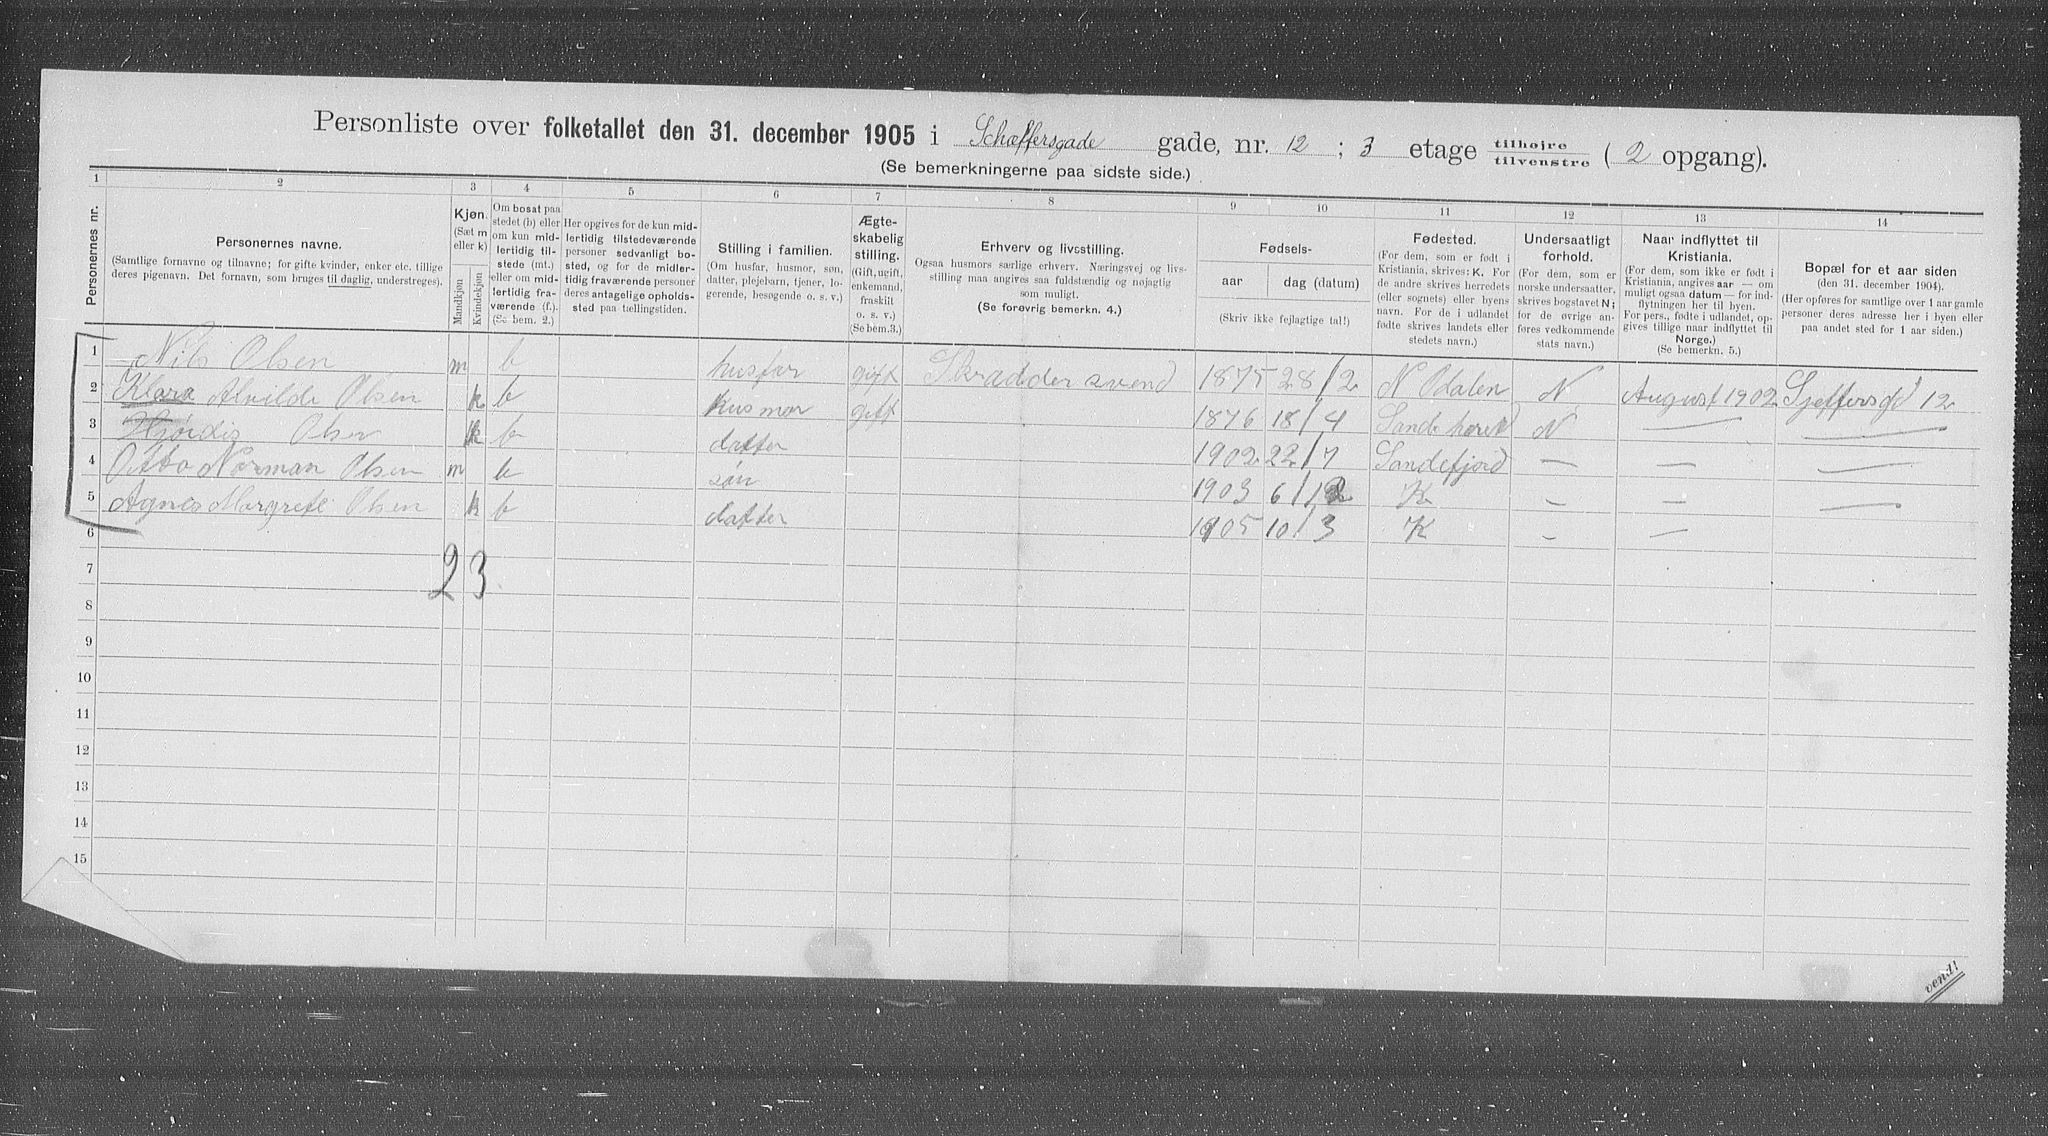 Personliste over folketallet den 31. december 1905 i Schæffersgade gade, nr. 12 ; 3 etage tilhøjre tilvenstre ( 2 opgang).
(Se bemerkningerne paa sidste side.)
1 2 3 4 5 6 7 8 9 10 11 12 13 14
Personernes nr.
Personernes navne.
(Samtlige fornavne og tilnavne; for gifte kvinder, enker etc. tillige
deres pigenavn. Det fornavn, som bruges til daglig, understreges).
Kjøn.
(Sæt m
eller k)
Mandkjøn
Kvindekjøn
Om bosat paa
stedet (b) eller
om kun mid-
lertidig til-
stede (mt.)
eller om mid-
lertidig fra-
værende (f.).
(Se bem. 2.)
Her opgives for de kun mid-
lertidig tilstedeværende
personer sedvanlig bo-
sted, og for de midler-
tidig fraværende personer
deres antagelige opholds-
sted paa tællingstiden.
Stilling i familien.
(Om husfar, husmor, søn,
datter, plejebarn, tjener, lo-
gerende, besøgende o. s. v.)
Ægte-
skabelig
stilling.
(Gift, ugift,
enkemand,
fraskilt
o. s. v.)
(Se bem. 3.)
Erhverv og livsstilling.
Ogsaa husmors særlige erhverv. Næringsvej og livs-
stilling maa angives saa fuldstændig og nøjagtig
som muligt.
(Se forøvrig bemerkn. 4.)
Fødsels-
aar dag (datum)
(Skriv ikke fejlagtige tal!)
Fødested.
(For dem, som er født i
Kristiania, skrives: K. For
de andre skrives herredets
(eller sognets) eller byens
navn. For de i udlandet
fødte skrives landets eller
stedets navn.)
Undersaatligt
forhold.
(For dem, som er
norske undersaatter,
skrives bogstavet N;
for de øvrige an-
føres vedkommende
stats navn.)
Naar indflyttet til
Kristiania.
(For dem, som ikke er født i
Kristiania, angives aar — om
muligt ogsaa datum — for ind-
flytningen her til byen.
For pers., fødte i udlandet, op-
gives tillige naar indflyttet til
Norge.)
(Se bemerkn. 5.)
Bopæl for et aar siden
(den 31. december 1904).
(Her opføres for samtlige over 1 aar gamle
personer deres adresse her i byen eller
paa andet sted for 1 aar siden.)
1 Nils Olsen m b husfar gift Skrædder svend 1875 28/2 N Odalen N August 1902 Sjeffersgd 12
2 Klara Alvilde Olsen k b husmor gift 1876 18/4 Sandehered N — —
3 Hjørdis Olsen k b datter 1902 22/7 Sandefjord — — —
4 Otto Norman Olsen m b søn 1903 6/12 K - — —
5 Agnes Margrete Olsen k b datter 1905 10/3 K - —
6
7 2 3
8
9
10
11
12
13
14
15
vend!